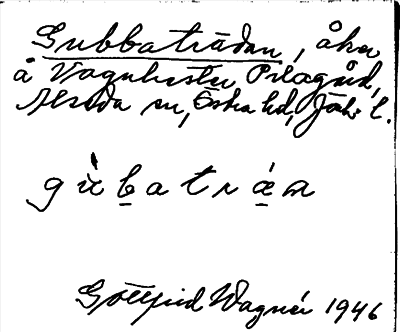 Gubbaträdan, åker
å Vagnhester Prästgård,
Alseda sn, Östra hd, Jök. l.
gùbatrǽa
Gottfrid Wagnér 1946